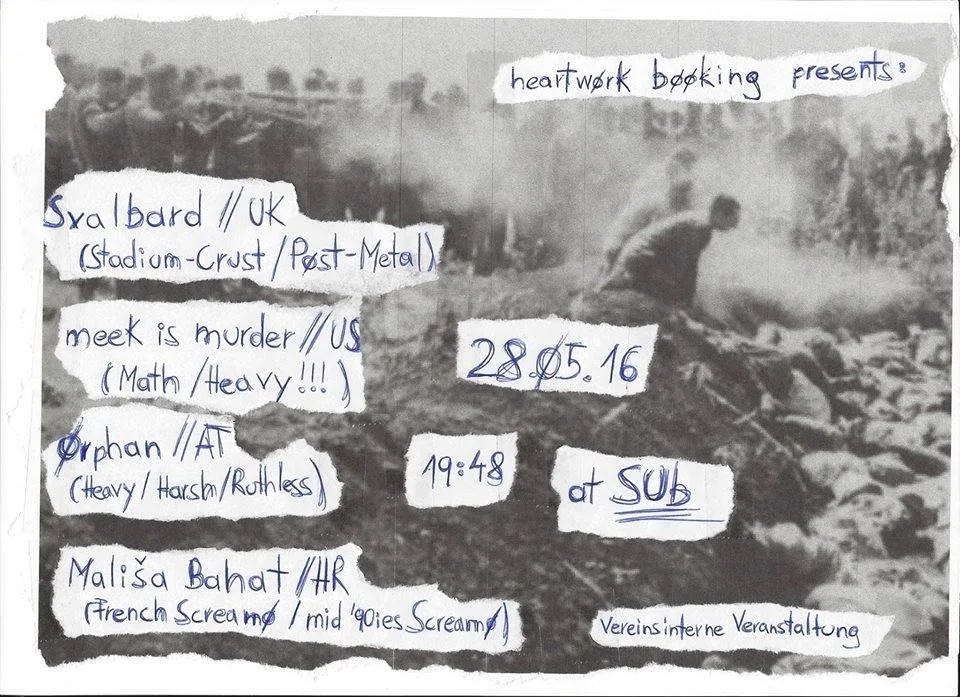 heartwørk bøøking presents:
Svalbard // UK
(Stadium-Crust / Pøst-Metal)
meek is murder // US
(Math / Heavy!!!)
28.Ø5.16
Ørphan // AT
(Heavy / Harsh / Ruthless)
19:48
at SUb
Mališa Bahat // HR
(French Screamø / mid '90ies Screamø)
Vereinsinterne Veranstaltung